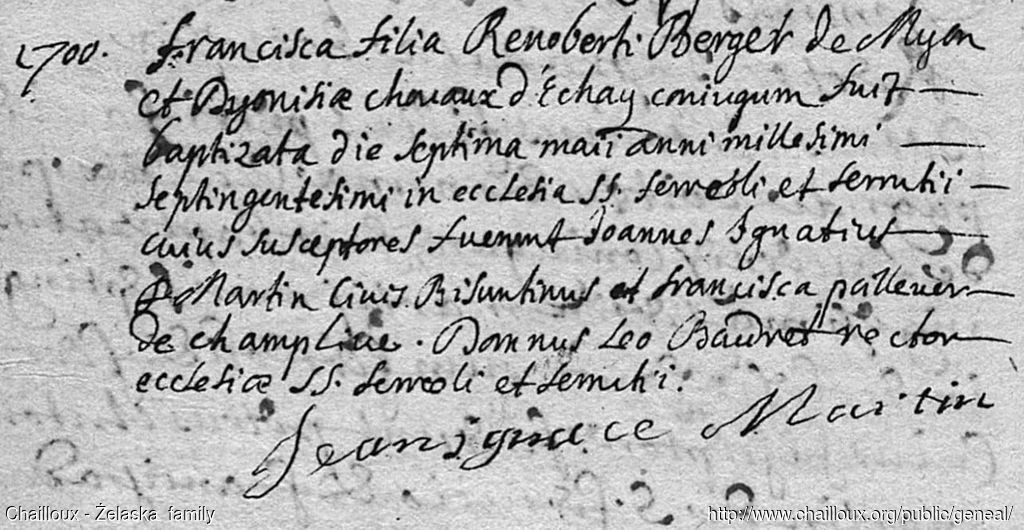 1700. Francisca filia Renoberti Berger de Myon
et Dyonisiæ chouaux d'Echay coniugum fuit
baptizata die septima maii anni millesimi
septingentesimi in ecclesia SS. ferreoli et ferrutii
cuius susceptores fuerunt Joannes Ignatius
Martin Civis Bisuntinus et francisca
de champlive. Domnus Leo Baudret rector
ecclesiæ SS. ferreoli et ferrutii.
Jean ignace Martin
Chailloux - Želaska family
http://www.chailloux.org/public/geneal/